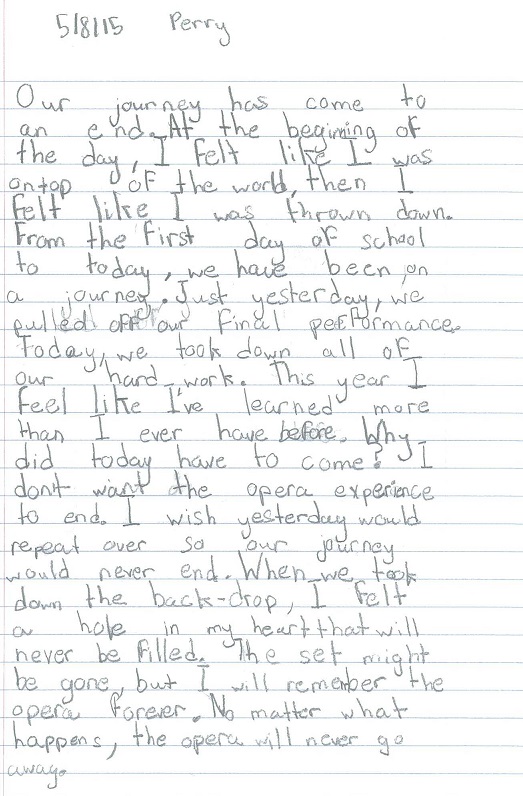 5/8/15 Perry
Our journey has come to
an end. At the begining of
the day, I felt like I was
ontop of the world, then I
felt like I was thrown down.
From the first day of school
to today, we have been on
a journey. Just yesterday, we
pulled off our final performance.
Today, we took down all of
our hard work. This year I
feel like I've learned more
than I ever have before. Why
did today have to come? I
dont want the opera experience
to end. I wish yesterday would
repeat over so our journey
would never end. When we took
down the back-drop, I felt
a hole in my heart that will
never be filled. The set might
be gone, but I will remember the
opera forever. No matter what
happens, the opera will never go
away.